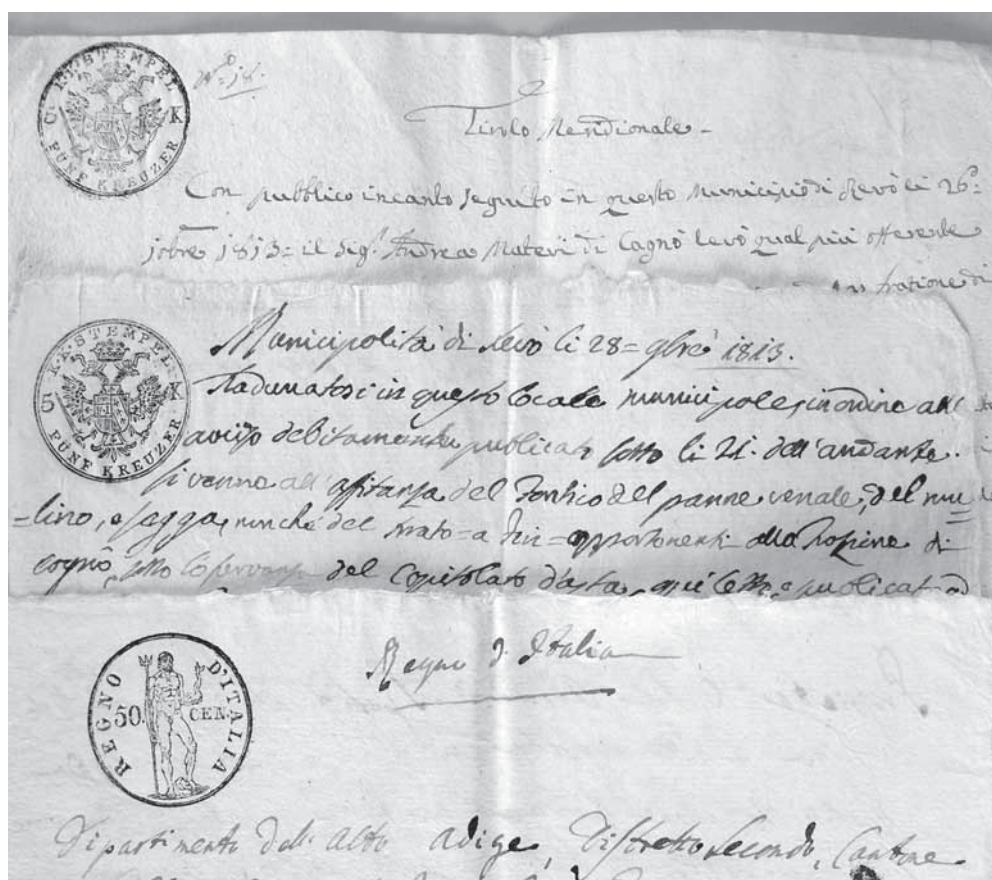 K.K. STEMPEL
5 K
FÜNF KREUZER
N° 18.
Tirolo Meridionale -
Con pubblico incanto seguito in questo Municipio di Revò li 26=
jobre 1813= il Sig.r Andrea Materi di Cagnò levò qual più offerente
in fratione di
K.K. STEMPEL
5 K
FÜNF KREUZER
Municipalità di Revò li 28= 9bre 1813.
Radunatosi in questo locale municipale, in ordine all'
aviso debitamente publicato sotto li 21. dell'andante.
si venne all'affitanza del Fontico del panne venale, del mu
=lino, e segga, nonche del prato =a = appartenenti alla Frazione di
Cagnò, sotto l'osservanza del Capitolato d'asta, qui letto, e publicato ad
REGNO D'ITALIA
50. CEN.
Regno d'Italia
Dipartimento dell'Alto Adige, Distretto Secondo, Cantone